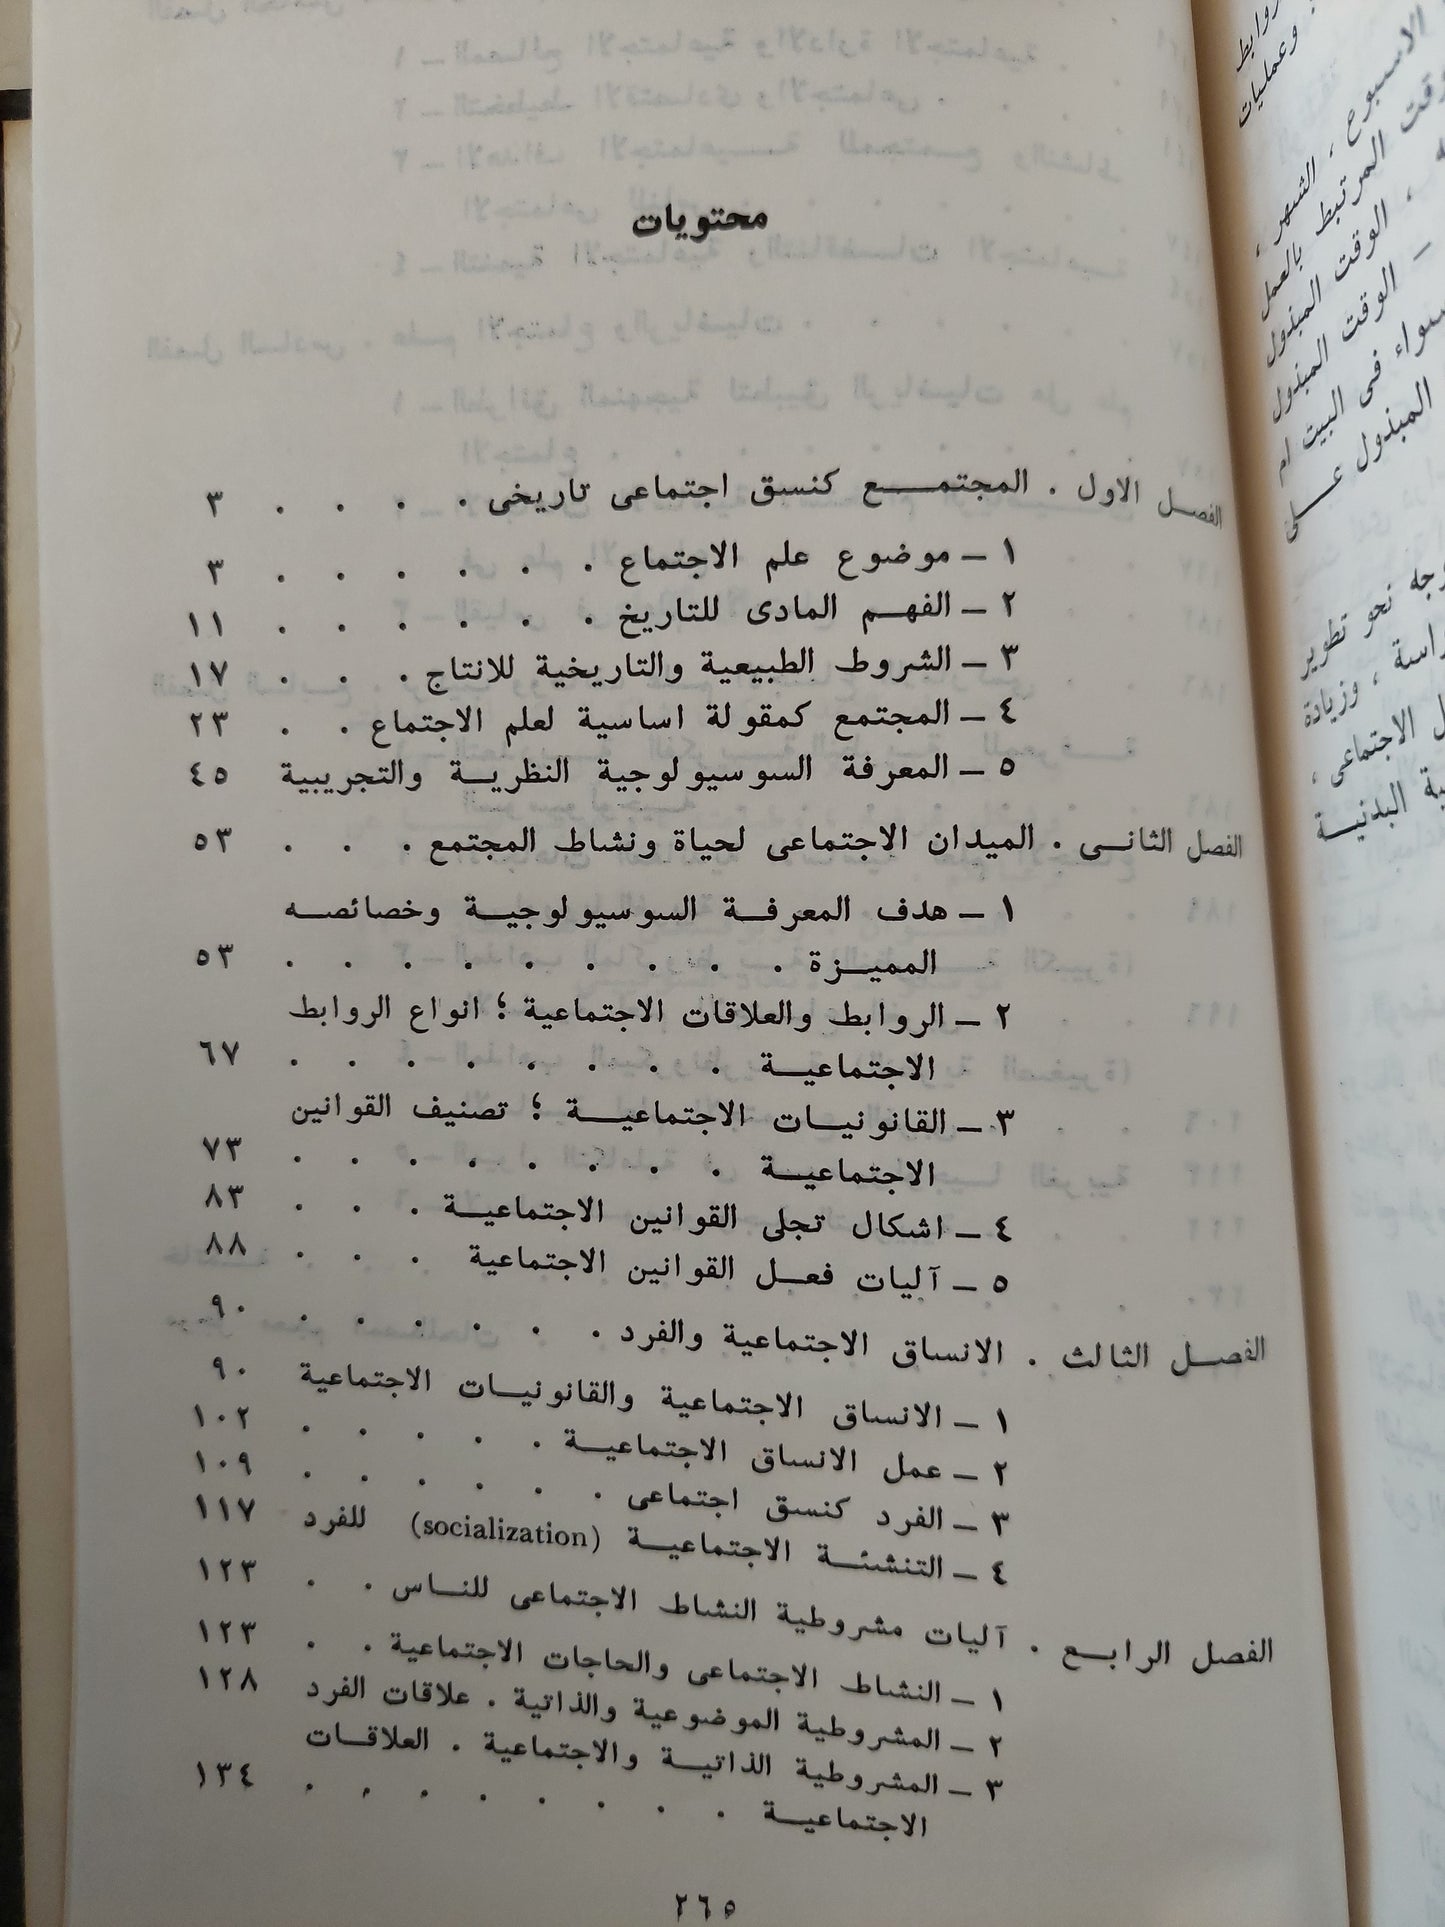 محتويات
الفصـل الاول . المجتمـــع كنسق اجتماعى تاريخى . . . . ٣
١ – موضوع علم الاجتماع . . . . . . ٣
٢ – الفهـم المادى للتاريخ . . . . . . ١١
٣ – الشروط الطبيعية والتاريخية للانتاج . . . ١٧
٤ – المجتمع كمقولة اساسية لعلم الاجتماع . . ٢٣
٥ – المعرفة السوسيولوجية النظريـة والتجريبية ٤٥
الفصل الثانـى . الميدان الاجتماعى لحياة ونشاط المجتمع . . . ٥٣
١ – هدف المعرفـة السوسيولوجيـة وخصائصـه
المميـزة . . . . . . . . . ٥٣
٢ – الروابط والعلاقات الاجتماعية ؛ انواع الروابط
الاجتماعيـة . . . . . . . . ٦٧
٣ – القانونيـات الاجتماعيـة ؛ تصنيف القوانين
الاجتماعيـة . . . . . . . . ٧٣
٤ – اشكال تجلى القوانين الاجتماعيـة . . . ٨٣
٥ – آليات فعـل القوانين الاجتماعية . . . ٨٨
الفصـل الثالث . الانساق الاجتماعية والفرد . . . . . . ٩٠
١ – الانساق الاجتماعية والقانونيـات الاجتماعية ٩٠
٢ – عمل الانساق الاجتماعيـة . . . . . ١٠٢
٣ – الفرد كنسق اجتماعى . . . . . . ١٠٩
٤ – التنشئـة الاجتماعيـة (socialization) للفرد ١١٧
الفصل الرابـع . آليات مشروطية النشاط الاجتماعى للنـاس . . ١٢٣
١ – النشاط الاجتماعى والحاجات الاجتماعية . . ١٢٣
٢ – المشروطية الموضوعية والذاتية . علاقات الفرد ١٢٨
٣ – المشروطية الذاتيـة والاجتماعية . العلاقـات
الاجتماعيـة . . . . . . . . ١٣٤
٢٦٥
وعمليات
الاسبوع ، الشهر ،
المرتبط بالعمل
، الوقت المبذول
– الوقت المبذول
سواء فى البيت ام
المبذول علـى
نحو تطوير
، وزيادة
الاجتماعى ،
البدنيـة